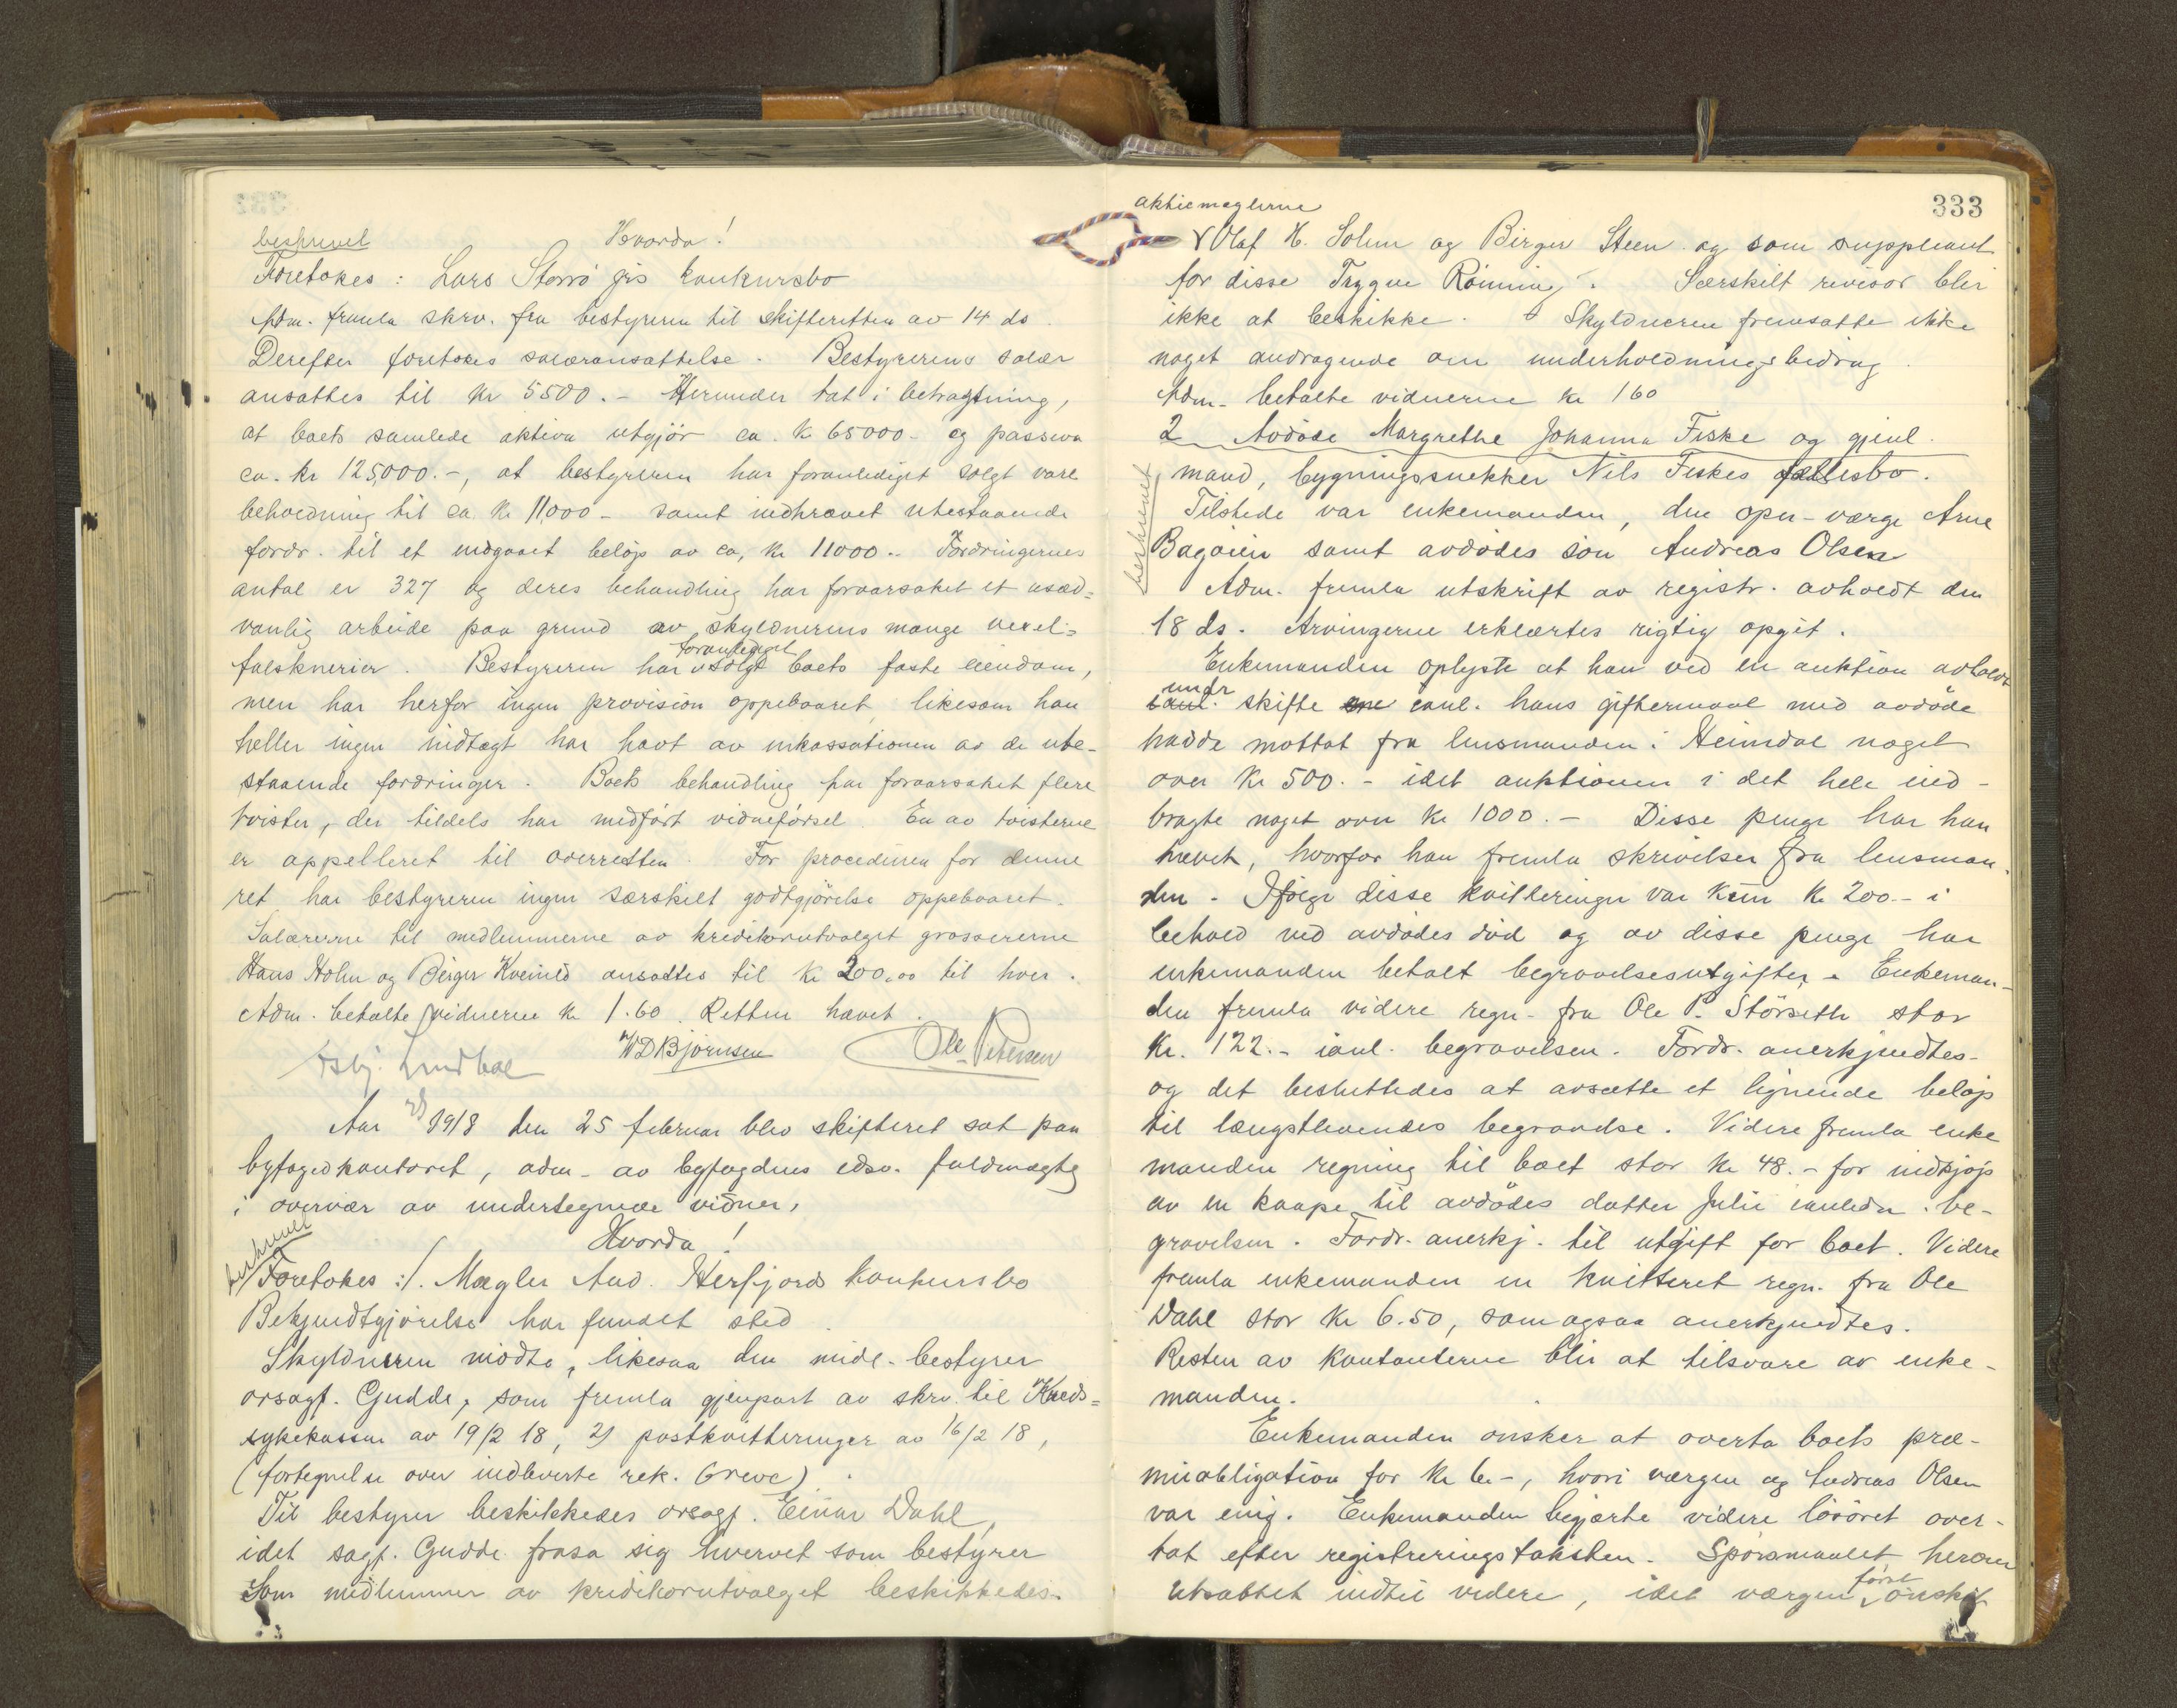 beskrevet Hvorda!
Foretokes: Lars Storrö jrs konkursbo
Adm. fremla skrv. fra bestyreren til skifteretten av 14 ds
Derefter foretokes salæransættelse. Bestyrerens salær
ansattes til kr 5500.- Herunder tat i betragtning,
at boets samlede aktiva utgjör ca. k 65000- og passiva
ca. kr 125,000.-, at bestyreren har foranlediget solgt vare
beholdning til ca. kr 11,000- samt indkrævet utestaaende
fordr. til et indgaaet belöp av ca, kr 11000.- Fordringernes
antal er 327 og deres behandling har foraarsaket et usæd-
vanlig arbeide paa grund av skyldnerens mange vexel-
falsknerier. Bestyreren har foranlediget solgt boets faste eiendom,
men har herfor ingen provision oppebaaret, likesom han
heller ingen indtægt har havt av inkassationen av de ute-
staaende fordringer. Boets behandling har foraarsaket flere
tvister, der tildels har medfört vidneförsel. En av tvisterne
er appelleret til overretten. For proceduren for denne
ret har bestyreren ingen særskilt godtgjörelse oppebaaret.
Salærerne til medlemmerne av kreditorutvalget grossererne
Hans Holm og Birger Kveinld ansattes til kr 200,00 til hver.
Adm. betalte vidnerne kr 1.60. Retten hævet.
Asbj. Lindboe WD Björnsen Ole Petersen
Aar 1918 den 25 februar blev skifteret sat paa
byfogedkontoret, adm. av byfogdens edsv. fuldmægtig
i overvær av undertegnede vidner,
Hvorda!
beskrevet
Foretokes :/. Mægler And. Herfjords konkursbo
Bekjendtgjörelse har fundet sted.
Skyldneren mödte, likesaa den midl. bestyrer
orsagf. Gudde, som fremla gjenpart av skrv. til Kreds-
sykekassen av 19/2 18, 2) postkvitteringer av 16/2 18,
(fortegnelse over indleverte rek. breve).
Til bestyrer beskikkedes orsagf. Einar Dahl,
idet sagf. Gudde frasa sig hvervet som bestyrer
Som medlemmer av kreditorutvalget beskikkedes
333
aktiemæglerne
Olaf H. Solem og Birger Steen og som suppleant
for disse Trygve Rönning. Særskilt revisor blir
ikke at beskikke. Skyldneren fremsatte ikke
noget andragende om underholdningsbidrag.
Adm. betalte vidnerne kr 160
2 Avdöde Margrethe Johanna Fiske og gjenl.
mand, bygningssnekker Nils Fiskes fællesbo.
beskrevet
Tilstede var enkemanden, den opn-værge Arne
Bagöien samt avdödes sön Andreas Olsen
Adm. fremla utskrift av registr. avholdt den
18 ds. Arvingerne erklærtes rigtig opgit.
Enkemanden oplyste at han ved en auktion avholdt
under skifte ianl. hans giftermaal med avdöde
hadde mottat fra lensmanden i Heimdal noget
over kr 500.- idet auktionen i det hele ind-
bragte noget over kr 1000.- Disse penge har han
hævet, hvorfor han fremla skrivelser fra lensman-
den. Ifölge disse kvitteringer var kun kr 200.- i
behold ved avdödes död og av disse penge har
enkemanden betalt begravelsesutgifter. Enkeman-
den fremla videre regn. fra Ole P. Störseth stor
kr. 122.- ianl. begravelsen. Fordr. anerkjendtes
og det besluttedes at avsætte et lignende belöp
til længstlevendes begravelse. Videre fremla enke
manden regning til boet stor kr 48.- for indkjöp
av en kaape til avdödes datter Julie ianledn. be-
gravelsen. Fordr. anerkj. til utgift for boet. Videre
fremla enkemanden en kvitteret regn. fra Ole
Dahl stor kr 6.50, som ogsaa anerkjendtes.
Resten av kontanterne blir at tilsvare av enke-
manden.
Enkemanden önsker at overta boets præ-
mieobligation for kr 6.-, hvori værgen og Andreas Olsen
var enig. Enkemanden begjærte videre lösöret over-
tat efter registreringstaksten. Spörsmaalet herom
utsattet indtil videre, idet værgen först önsket